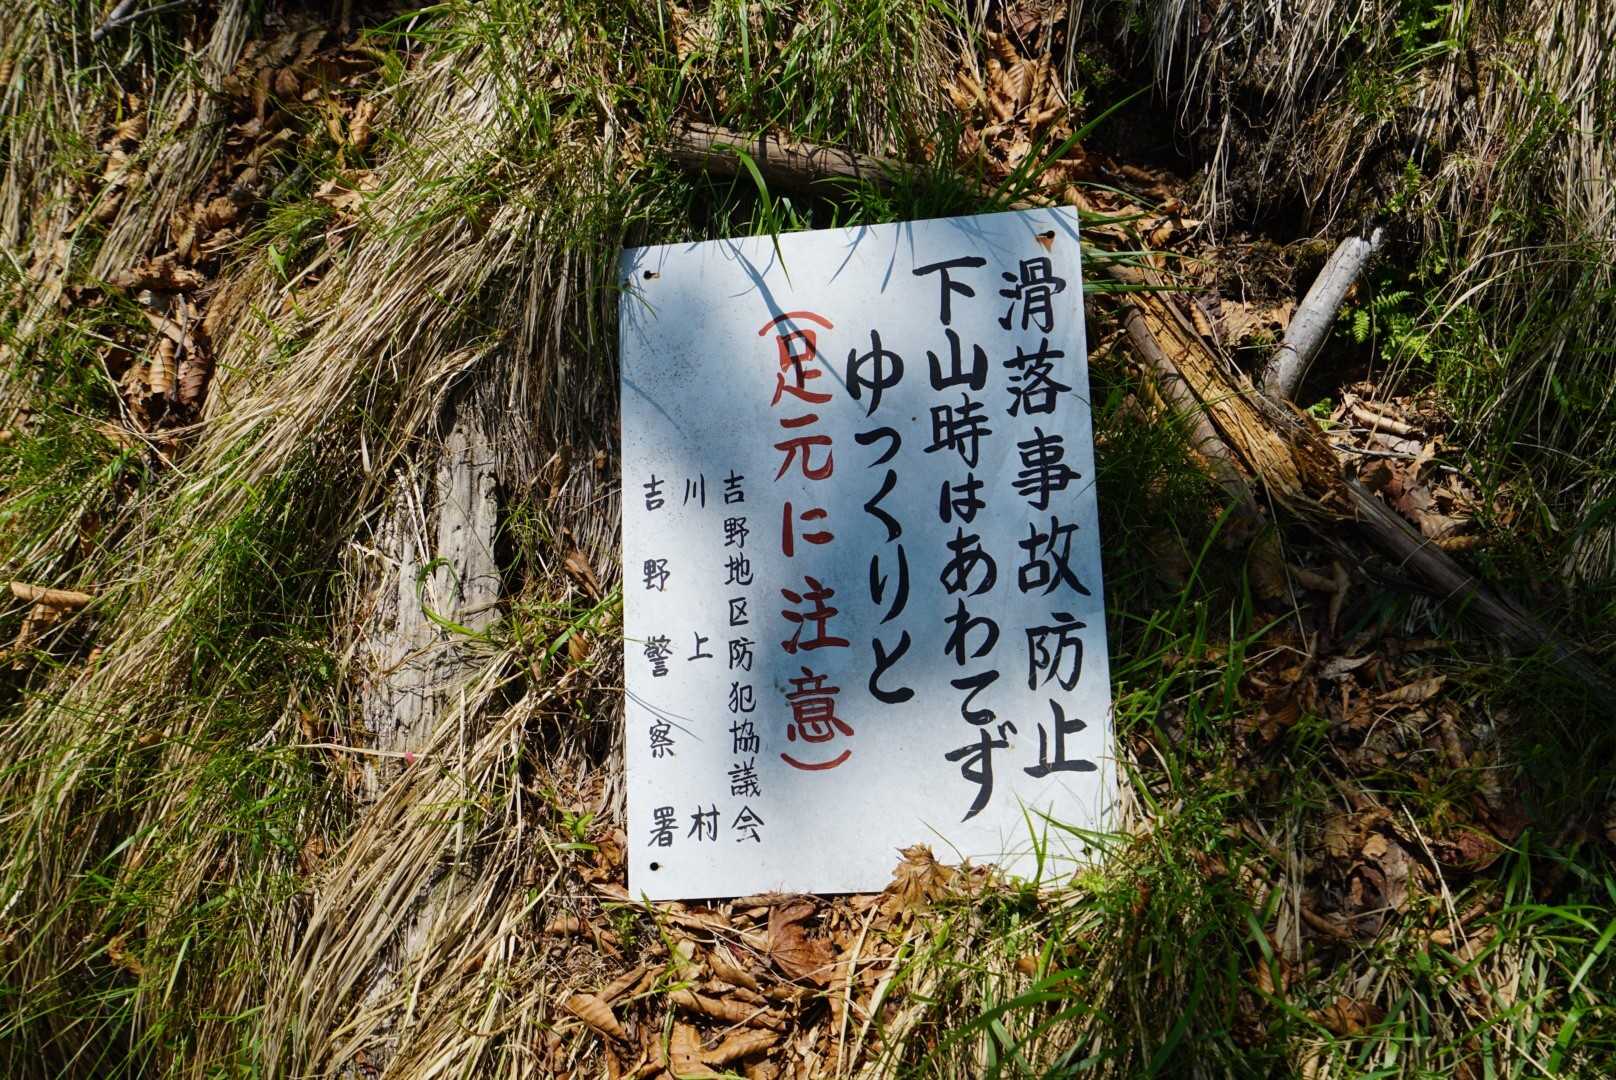 滑落事故防止
下山時はあわてず
ゆっくりと
(足元に注意)
吉野地区防犯協議会
川上村
吉野警察署